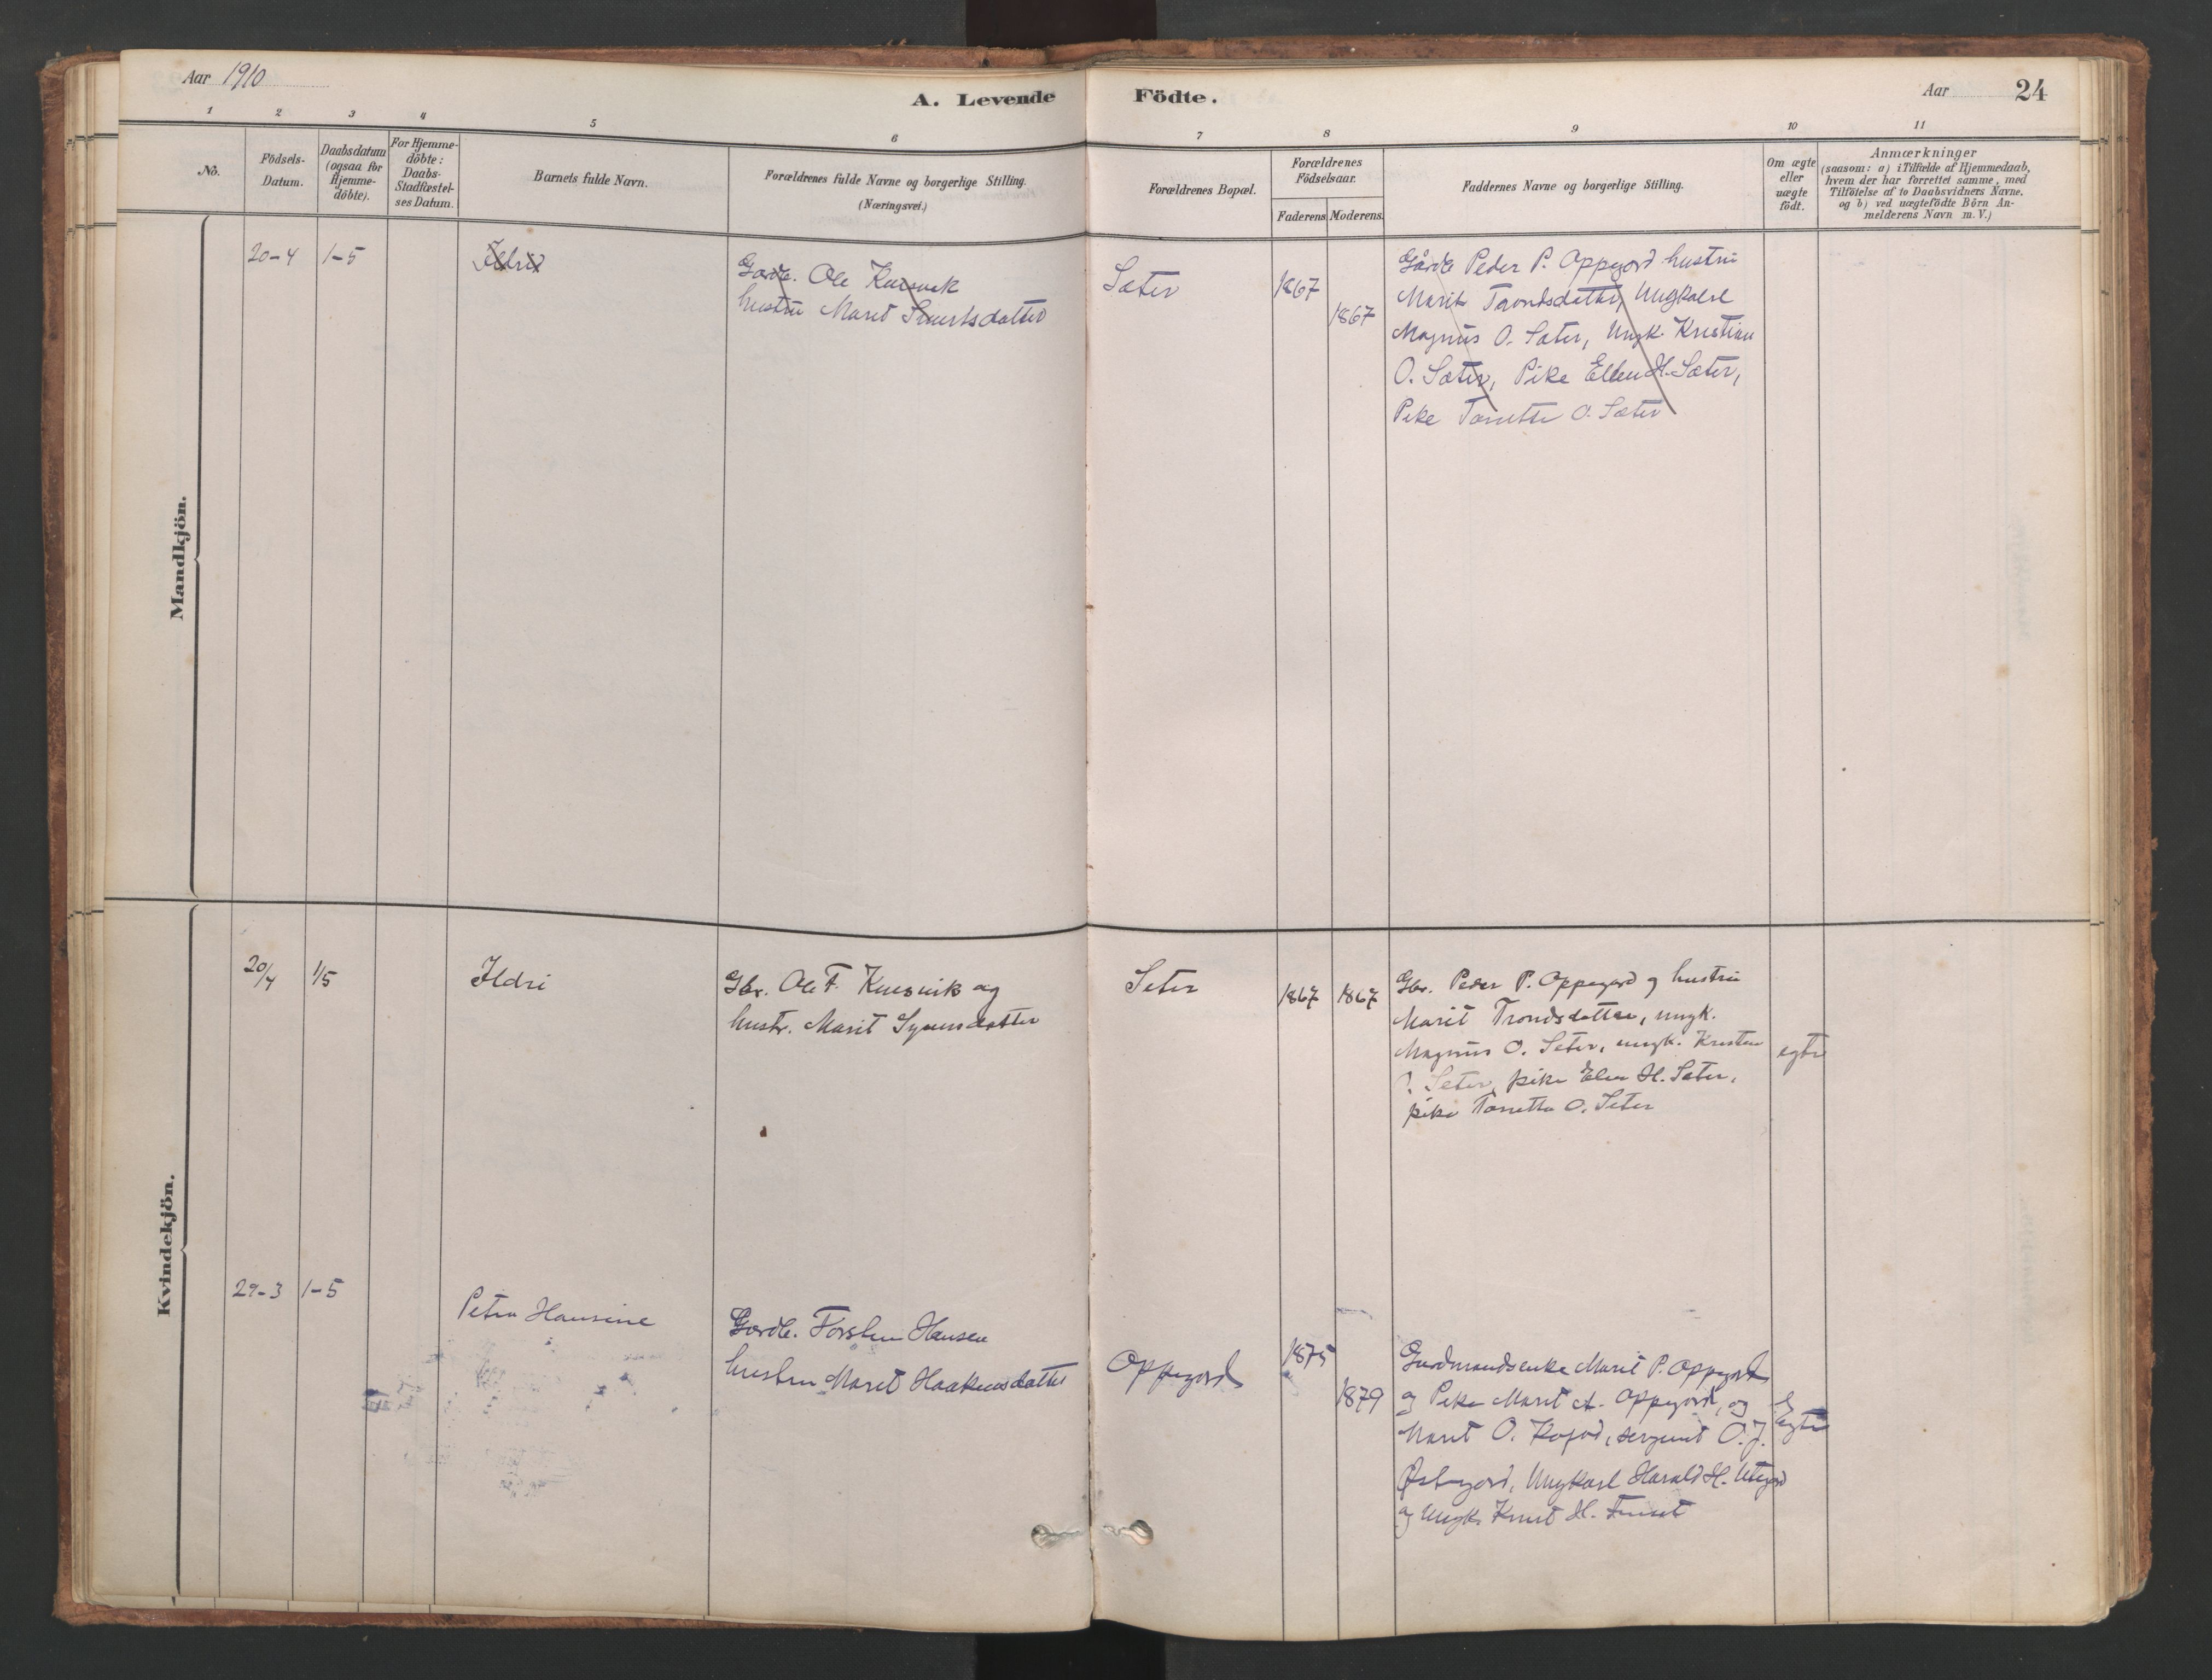 Aar 1910
A. Levende Födte.
Aar 24
1 2 3 4 5 6 7 8 9 10 11
No.
Födsels-
Datum.
Daabsdatum
(ogsaa for
Hjemme-
döbte).
For Hjemme-
döbte:
Daabs-
Stadfæstel-
ses Datum.
Barnets fulde Navn.
Forældrenes fulde Navne og borgerlige Stilling.
(Næringsvei.)
Forældrenes Bopæl.
Forældrenes
Födselsaar.
Faderens. Moderens.
Faddernes Navne og borgerlige Stilling.
Om ægte
eller
uægte
födt.
Anmærkninger
(saasom: a) i Tilfælde af Hjemmedaab,
hvem der har forrettet samme, med
Tilföielse af to Daabsvidners Navne,
og b) ved uægtefödte Börn An-
melderens Navn m. V.)
Mandkjön.
20-4 1-5
Ildri
Gardb. Ole
hustru Marit
Sæter
1867
1867
Gårdb Peder P. Oppegard hustru
Marit Trondsdatter, Ungkarl
Magnus O. Sæter, Ungk. Kristian
O. Sæter, Pike Ellen H. Sæter,
Pike O. Sæter
Kvindekjön.
20/4 1/5
Ildri
Gbr. Ole F. og
hustr. Marit
Seter
1867 1867
Gbr. Peder P. Oppegard og hustru
Marit Trondsdatter, ungk.
Magnus O. Seter, ungk. Kristian
O. Seter, pike Elen H. Seter,
pike O. Seter
egte
29-3 1-5
Petra Hansine
Gardb. Torsten Hansen
hustru Marit Haakensdatter
Oppegard
1875
1879
Gardmandsenke Marit P. Oppegard
og Pike Marit A. Oppegard, og
Marit O. sergeant O. J.
Ungkarl Harald H.
og Ungk. Knut H.
Egte